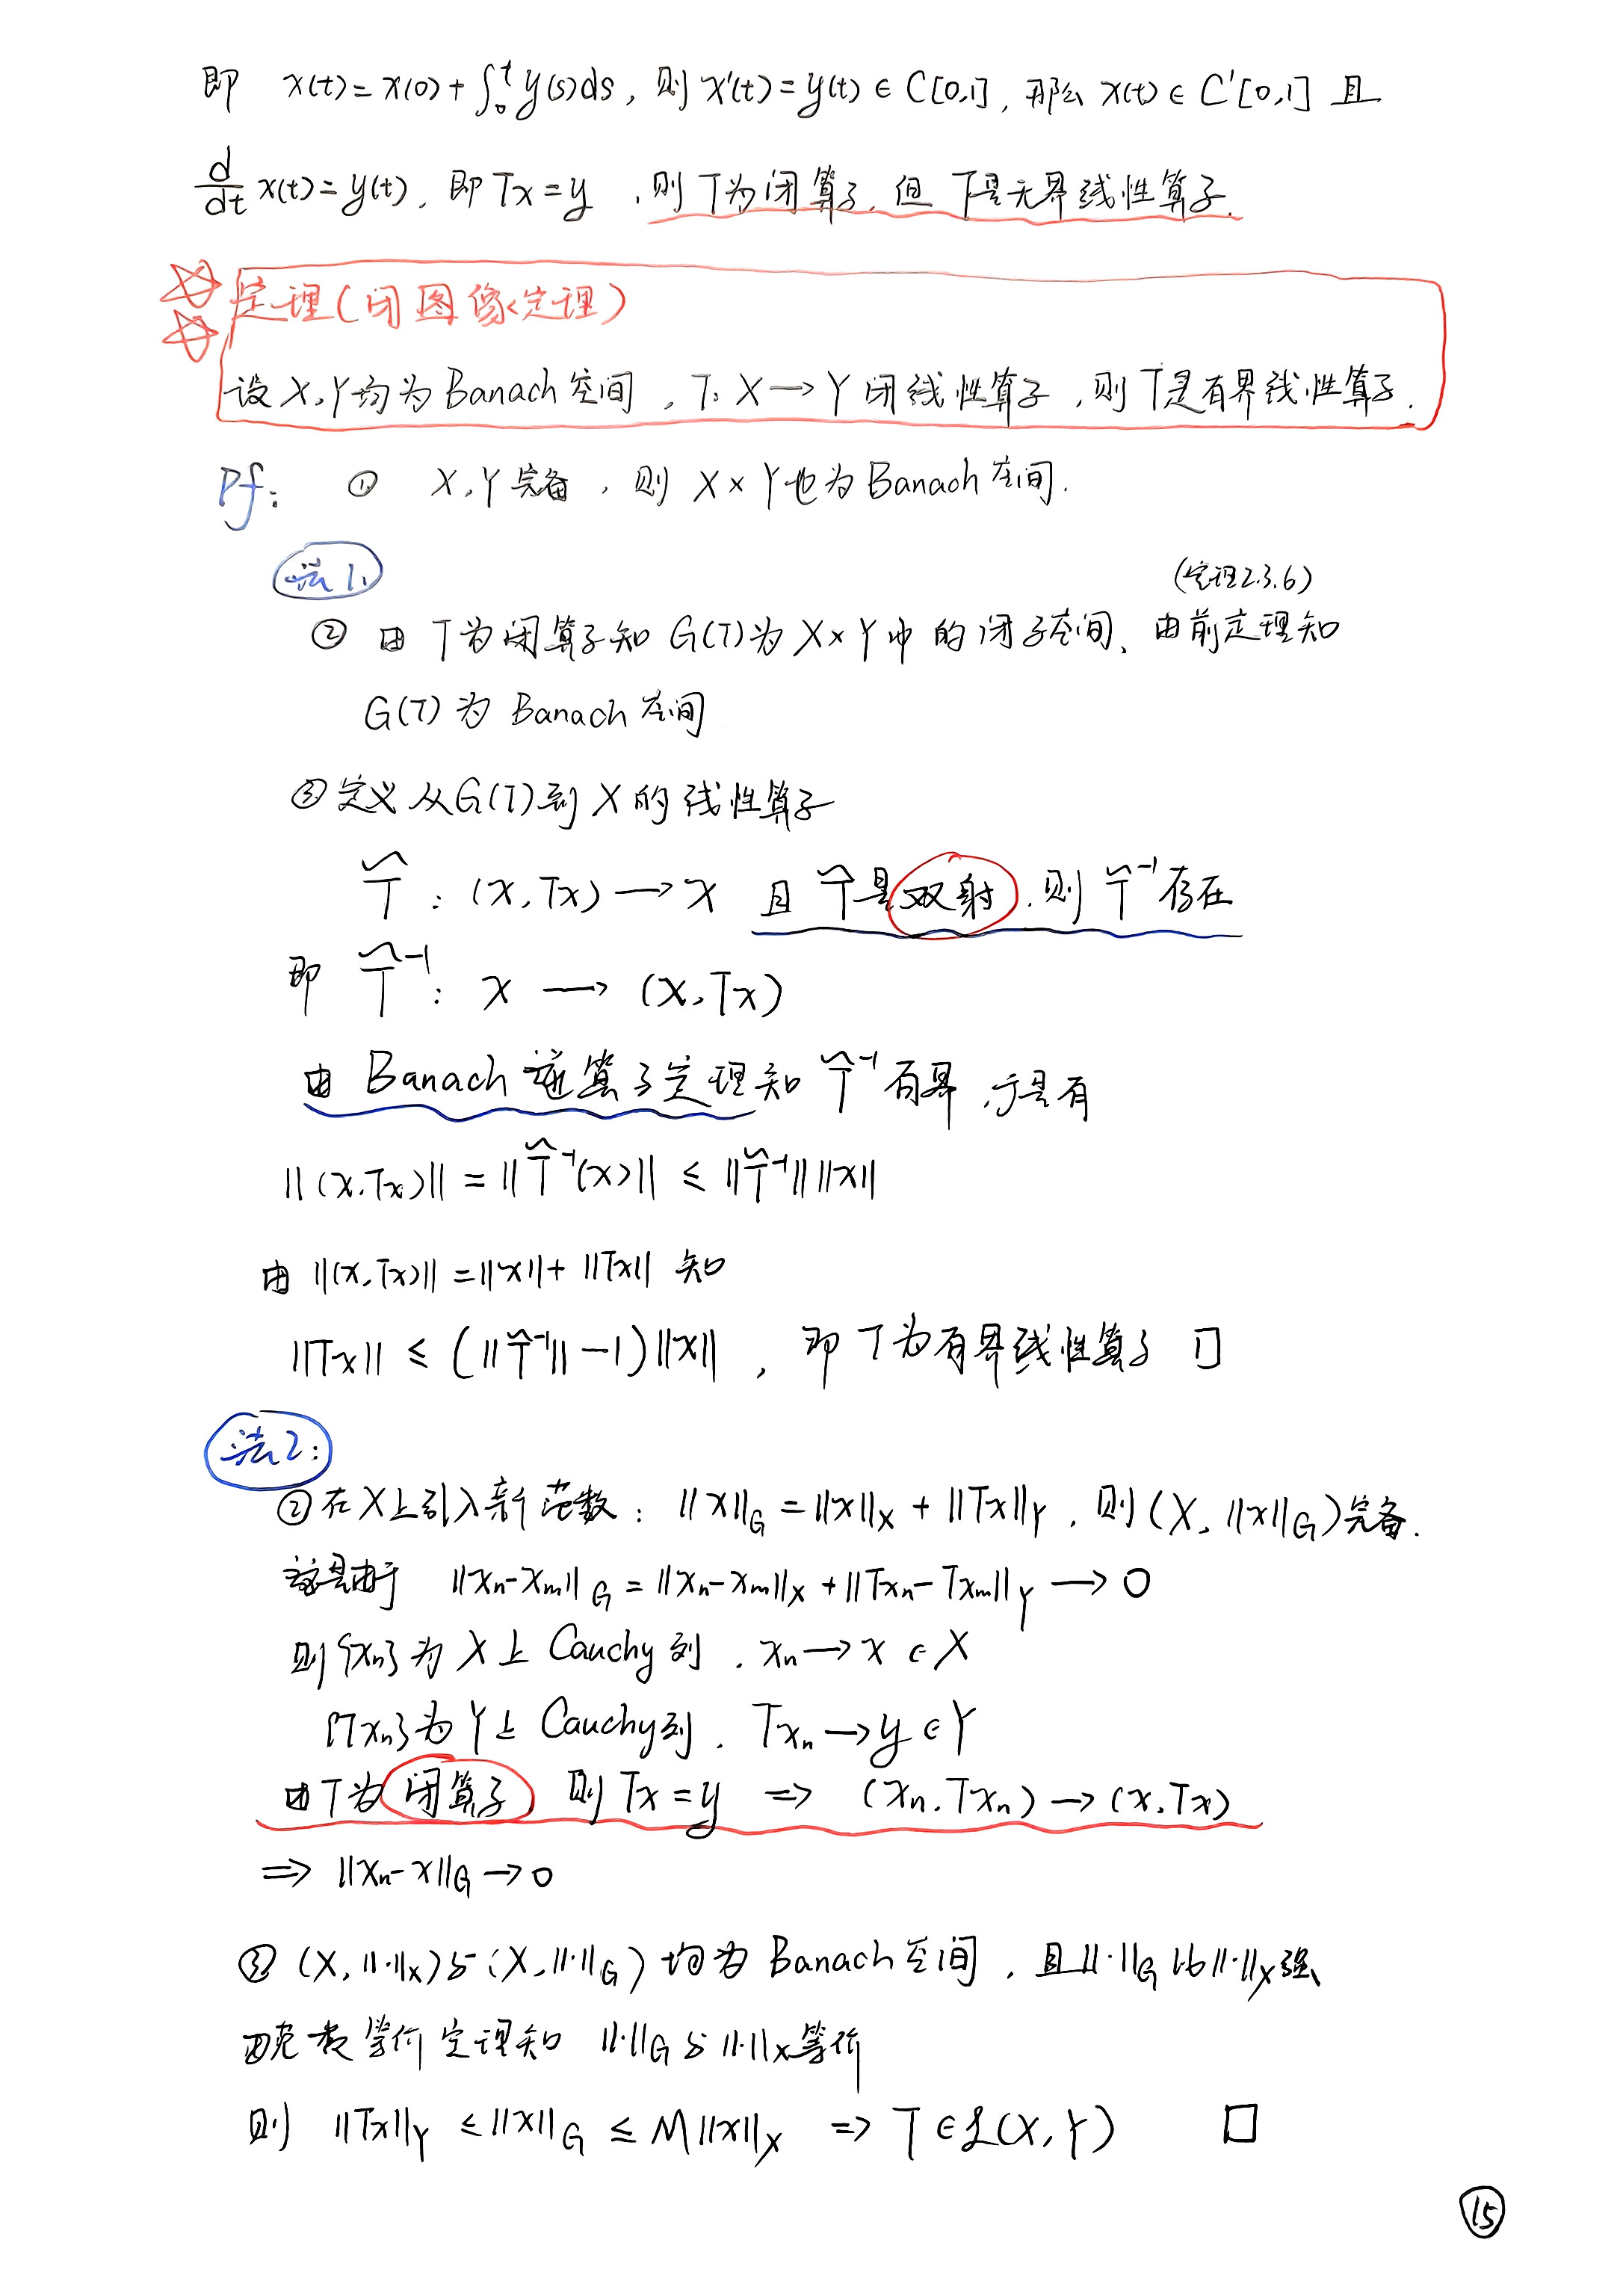 即 x(t)=x(0)+∫₀ᵗ y(s)ds, 则 x'(t)=y(t)∈C[0,1], 那么 x(t)∈C'[0,1] 且
d/dt x(t)=y(t), 即 Tx=y, 则 T为闭算子, 但 T是无界线性算子.
定理(闭图像定理)
设 X,Y均为Banach空间, T: X→Y 闭线性算子, 则T是有界线性算子.
Pf: ① X,Y完备, 则 X×Y也为Banach空间.
法1.
(定理2.3.6)
② 由 T为闭算子知 G(T)为X×Y中的闭子空间, 由前定理知
G(T)为 Banach空间
③ 定义从G(T)到X的线性算子
T̃: (x,Tx)→x 且 T̃是双射, 则 T̃⁻¹存在
即 T̃⁻¹: x→(x,Tx)
由 Banach逆算子定理知 T̃⁻¹有界, 于是有
||(x,Tx)||=||T̃⁻¹(x)||≤||T̃⁻¹|| ||x||
由 ||(x,Tx)||=||x||+||Tx|| 知
||Tx||≤(||T̃⁻¹||-1)||x||, 即 T为有界线性算子 □
法2:
② 在X上引入新范数: ||x||_G=||x||_X+||Tx||_Y, 则(X,||x||_G)完备.
这是由于 ||xₙ-xₘ||_G=||xₙ-xₘ||_X+||Txₙ-Txₘ||_Y→0
则{xₙ}为X上Cauchy列, xₙ→x∈X
{Txₙ}为Y上Cauchy列, Txₙ→y∈Y
由T为闭算子 则 Tx=y ⇒ (xₙ,Txₙ)→(x,Tx)
⇒ ||xₙ-x||_G→0
③ (X,||·||_X)与(X,||·||_G)均为Banach空间, 且||·||_G比||·||_X强
由范数等价定理知 ||·||_G与||·||_X等价
则 ||Tx||_Y≤||x||_G≤M||x||_X ⇒ T∈ℒ(X,Y) □
15